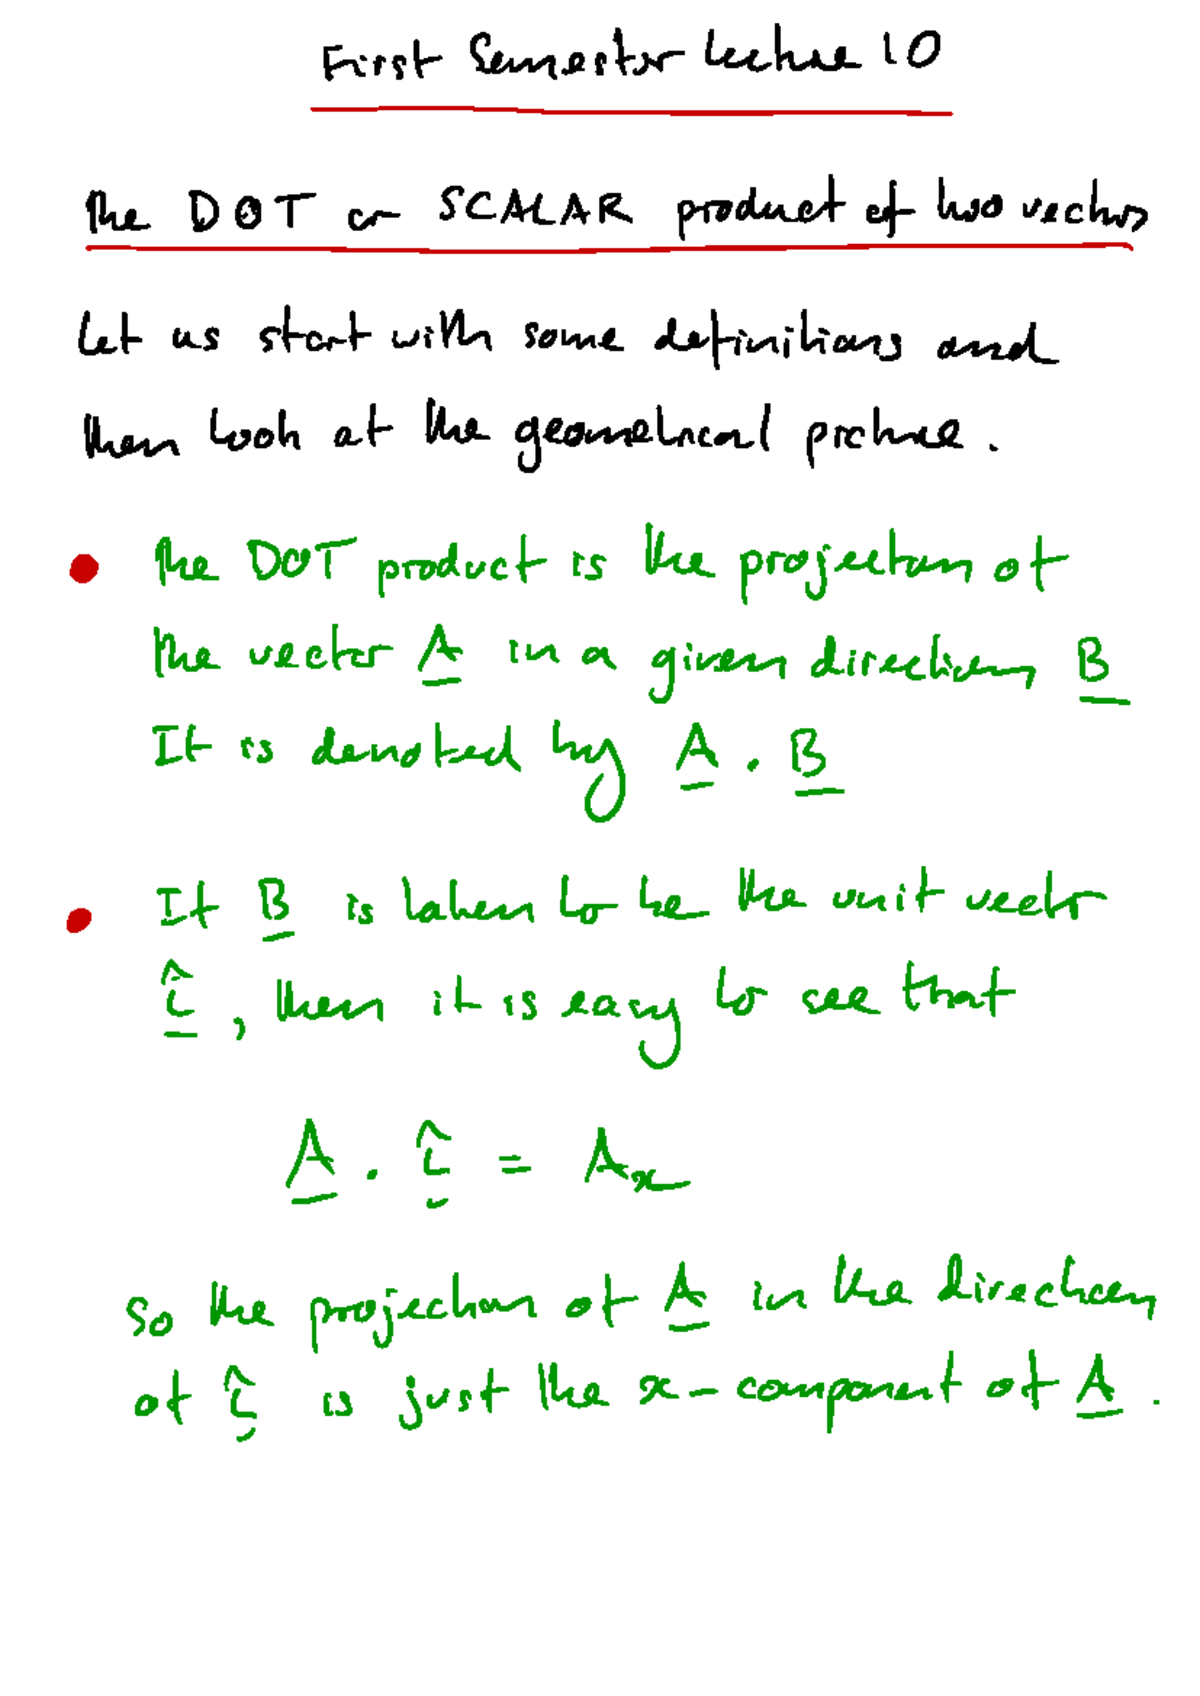 First Semester Lecture 10
The DOT or SCALAR product of two vectors
Let us start with some definitions and
then look at the geometrical picture.
• The DOT product is the projection of
the vector A in a given direction B
It is denoted by A . B
• If B is taken to be the unit vector
î, then it is easy to see that
A . î = Aₓ
So the projection of A in the direction
of î is just the x-component of A.